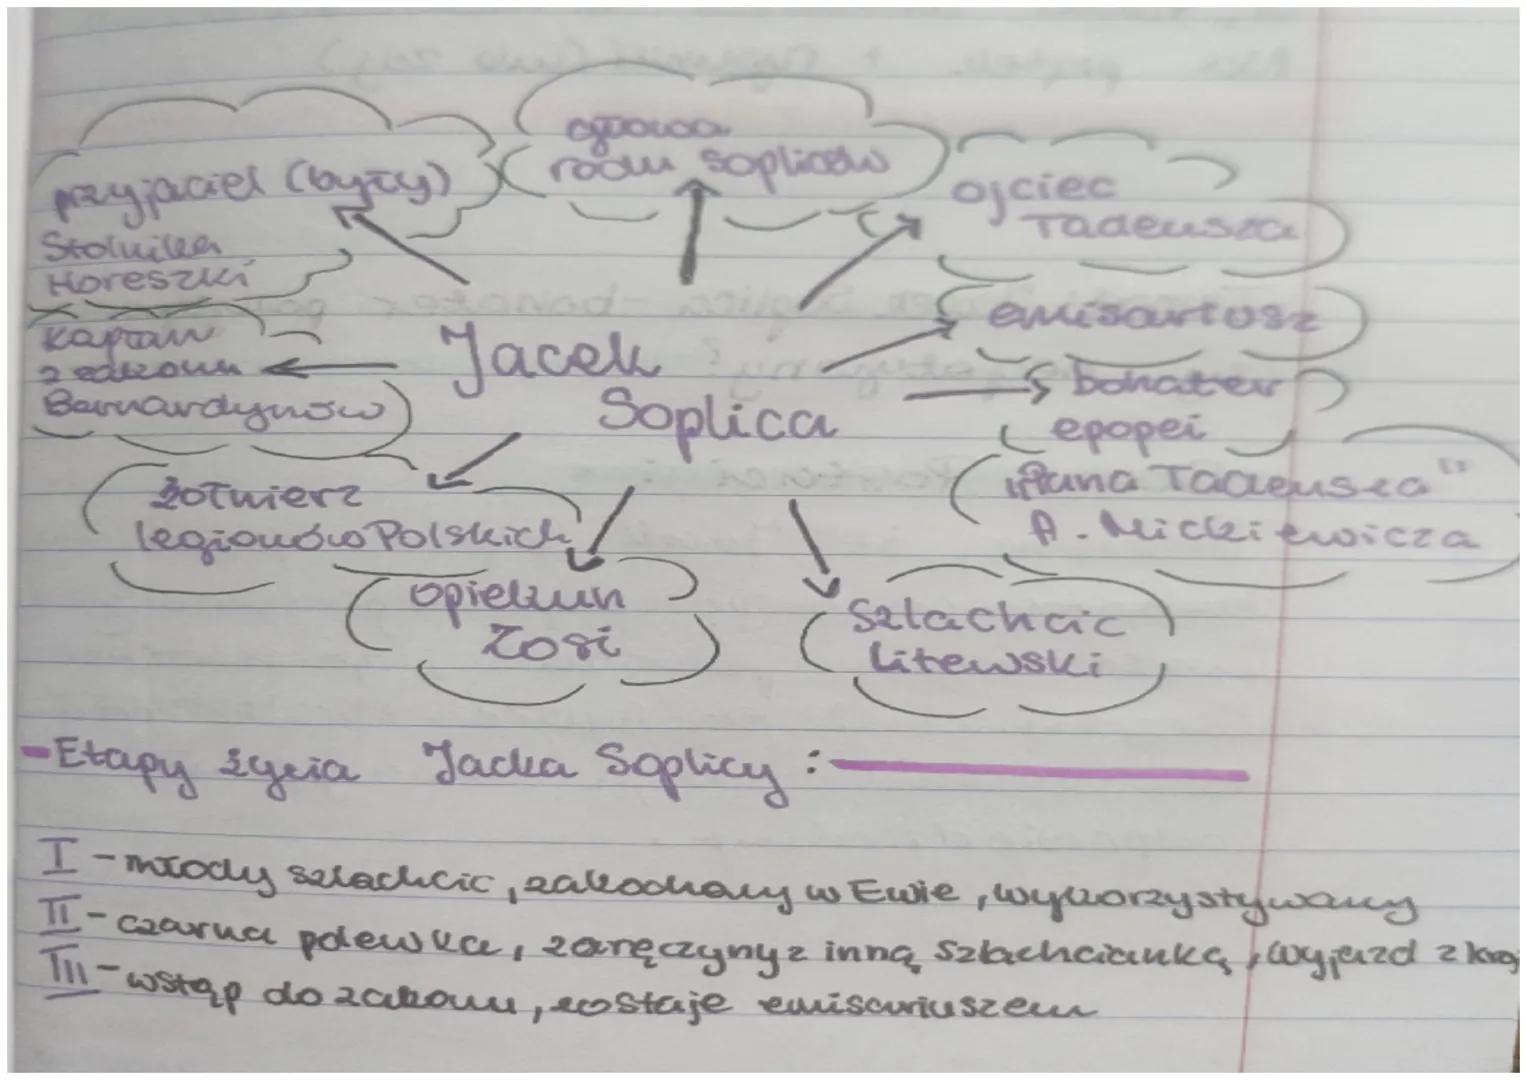 przyjaciel (były)
Stolnika
Horeszki
głowa
rodu Sopliców
ojciec
Tadeusza
emisariusz
bohater
epopei
"Pana Tadeusza"
A. Mickiewicza
Jacek
Soplica
kapłan
z zakonu
Bernardynów
żołnierz
legionów Polskich
opiekun
Zosi
Szlachcic
Litewski
- Etapy życia Jacka Soplicy :
I - młody szlachcic, zakochany w Ewie, wykorzystywany
II - czarna polewka, zaręczyny z inną szlachcianką, wyjazd z
III - wstąp do zakonu, zostaje emisariuszem